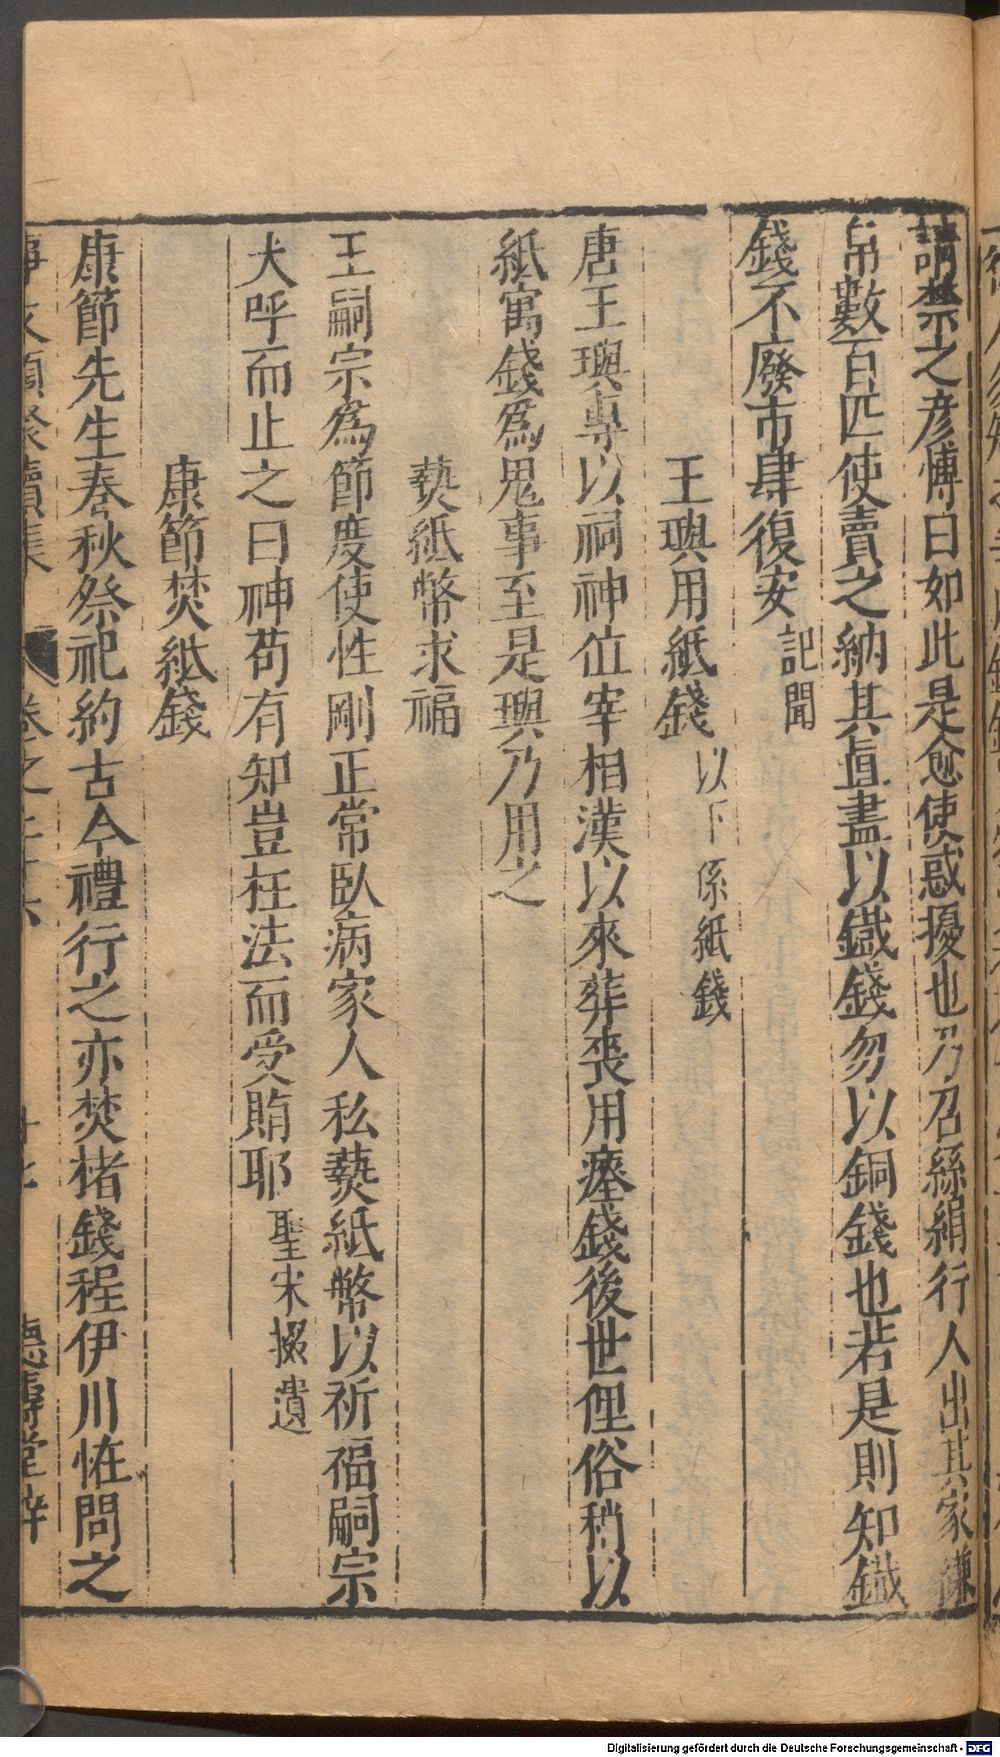 請禁之彥愽曰如此是愈使惑擾也乃召絲絹行人出其家縑
帛數百匹使賣之納其直盡以鐡錢勿以銅錢也若是則知鐡
錢不廢市肆復安 記聞
王璵用紙錢 以下係紙錢
唐王璵專以祠神位宰相漢以來葬喪用瘞錢後世俚俗稍以
紙寓錢為鬼事至是璵乃用之
爇紙幣求福
王嗣宗為節度使性剛正常臥病家人私爇紙幣以祈福嗣宗
大呼而止之曰神苟有知豈枉法而受賄耶 聖宋掇遺
康節焚紙錢
康節先生春秋祭祀約古今禮行之亦焚楮錢程伊川恠問之
事文類聚續集 卷之二十六 廿七 德壽堂梓
Digitalisierung gefördert durch die Deutsche Forschungsgemeinschaft - DFG